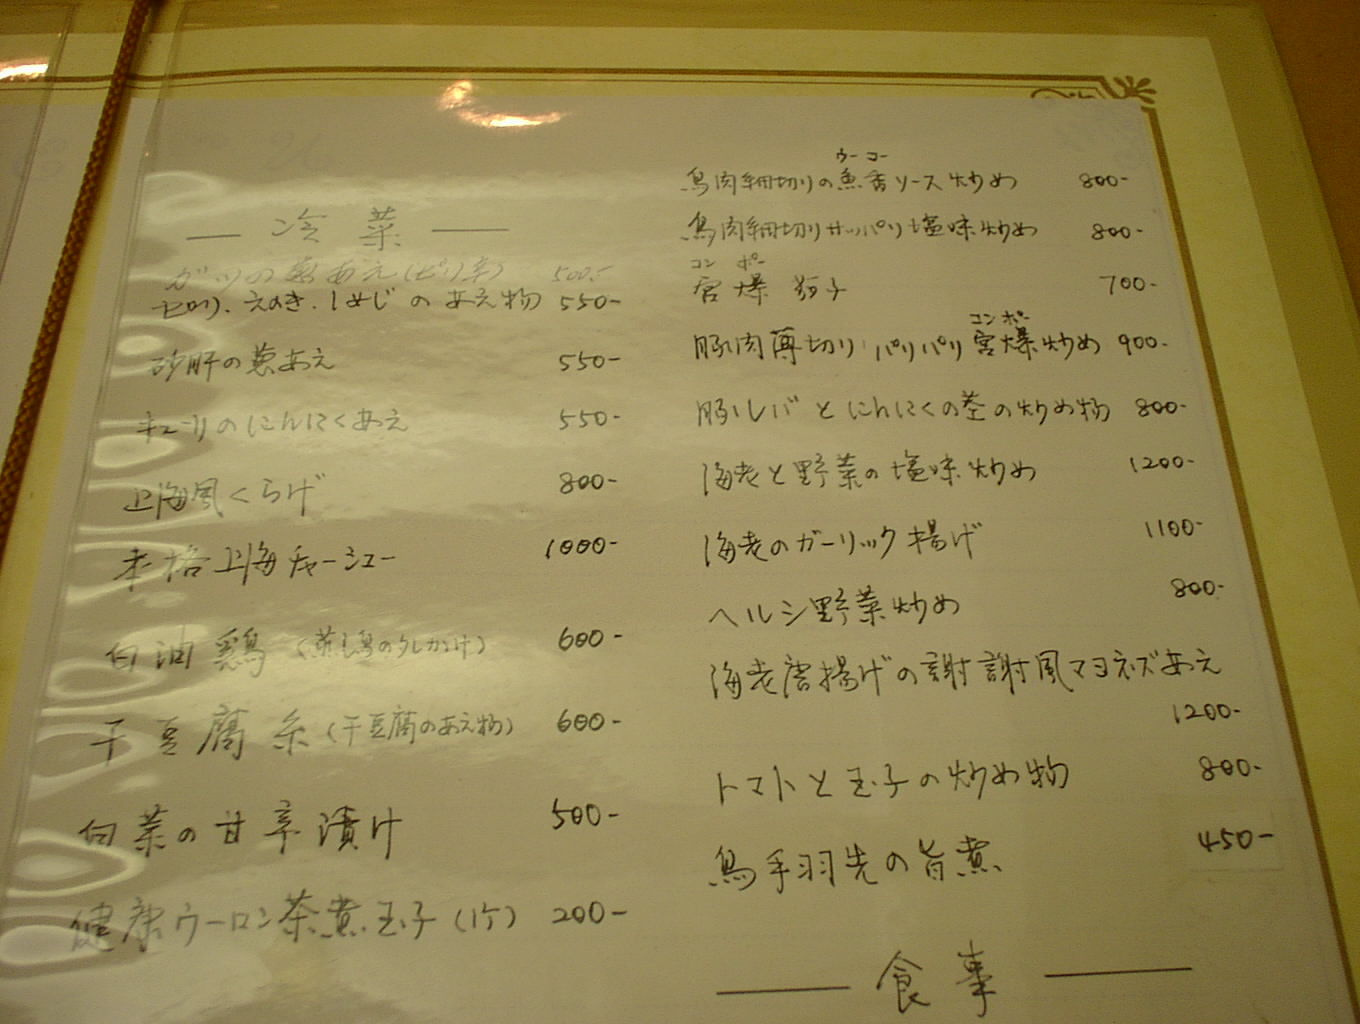 冷菜
ガツの葱あえ(ピリ辛) 500-
セロリ、えのき、しめじのあえ物 550-
砂肝の葱あえ 550-
キューリのにんにくあえ 550-
上海風くらげ 800-
本格上海チャーシュー 1000-
白油鶏(蒸し鳥のタレかけ) 600-
干豆腐糸(干豆腐のあえ物) 600-
白菜の甘辛漬け 500-
健康ウーロン茶煮玉子(1ケ) 200-
ウーコー
鳥肉細切りの魚香ソース炒め 800-
鳥肉細切りサッパリ塩味炒め 800-
コンポー
宮爆茄子 700-
コンポー
豚肉薄切りパリパリ宮爆炒め 900-
豚レバとにんにくの茎の炒め物 800-
海老と野菜の塩味炒め 1200-
海老のガーリック揚げ 1100-
ヘルシ野菜炒め 800-
海老唐揚げの謝謝風マヨネズあえ
1200-
トマトと玉子の炒め物 800-
鳥手羽先の旨煮 450-
食事